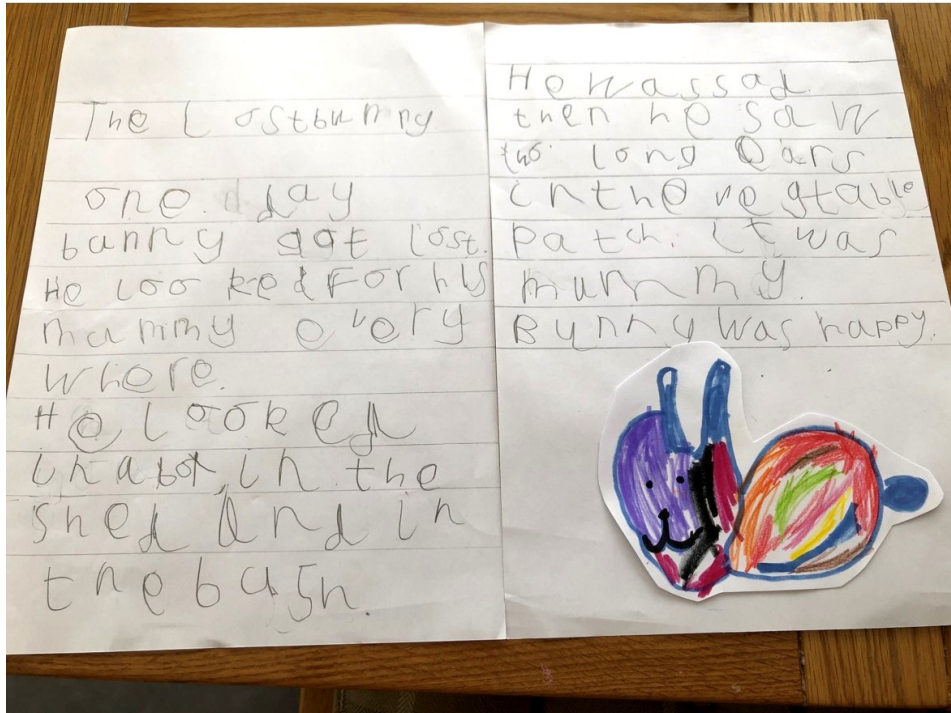 The Lostbunny
one day
bunny got lost.
He looked For his
mummy every
where.
He looked
in a bot, in the
shed And in
the bush.
He was sad.
then he saw
two long ears
in the vegtable
patch. it was
mummy.
Bunny was happy.